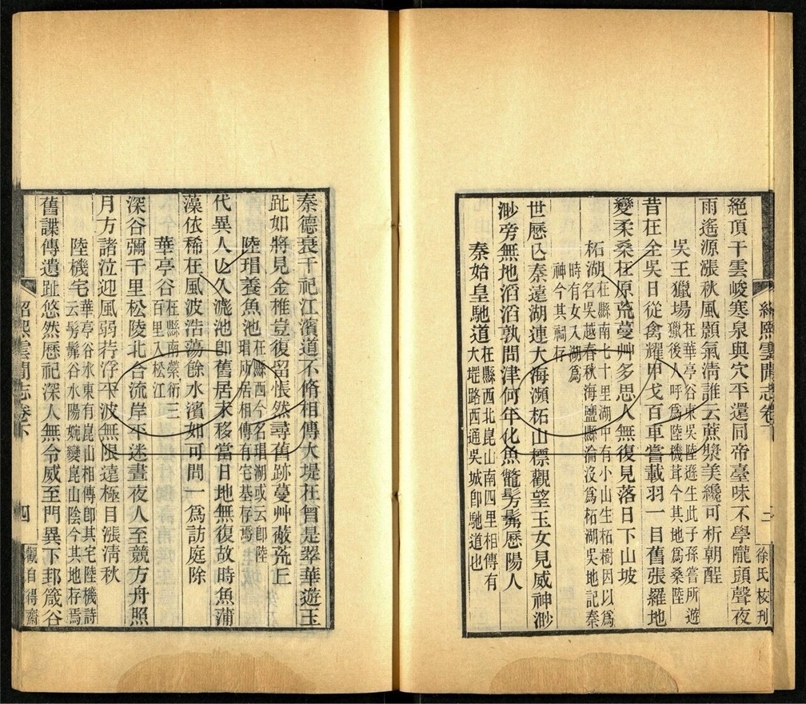 紹熙雲間志卷下 二 徐氏校刋
絕頂干雲峻寒泉與穴平還同帝臺味不學隴頭聲夜
雨遙源漲秋風顥氣清誰云蔗漿美纔可析朝酲
吳王獵場
在華亭谷東吳陸遜生此子孫嘗所遊
獵後人呼爲陸機茸今其地爲桑陸
昔在全吳日從禽耀甲戈百車嘗載羽一目舊張羅地
變柔桑在原荒蔓艸多思人無復見落日下山坡
柘湖
在縣南七十里湖中有小山生柘樹因以爲
湖名吳越春秋海鹽縣淪沒爲柘湖吳地記秦
時有女入湖爲
神今其祠存
世歷亾秦遠湖連大海瀕柘山標觀望玉女見威神渺
渺旁無地滔滔孰問津何年化魚鼈髣髴歷陽人
秦始皇馳道
在縣西北崑山南四里相傳有
大堽路西通吳城卽馳道也
秦德衰千祀江濱道不脩相傳大堤在曾是翠華遊玉
趾如將見金椎豈復留悵然尋舊跡蔓艸蔽荒丘
陸瑁養魚池
在縣西今名瑁湖或云卽陸
瑁所居相傳有宅基存焉
代異人亾久漉池卽舊居未移當日地無復故時魚蒲
藻依稀在風波浩蕩餘水濱如可問一爲訪庭除
華亭谷
在縣南縈衍三
百里入松江
深谷彌千里松陵北合流岸平迷晝夜人至競方舟照
月方諸泣迎風弱荇浮平波無限遠極目漲清秋
陸機宅
華亭谷水東有崑山相傳卽其宅陸機詩
云髣髴谷水陽婉孌崑山陰今其地存焉
舊諜傳遺趾悠然歷祀深人無令威至門異下邦箴谷
紹熙雲間志卷下 四 觀自得齋